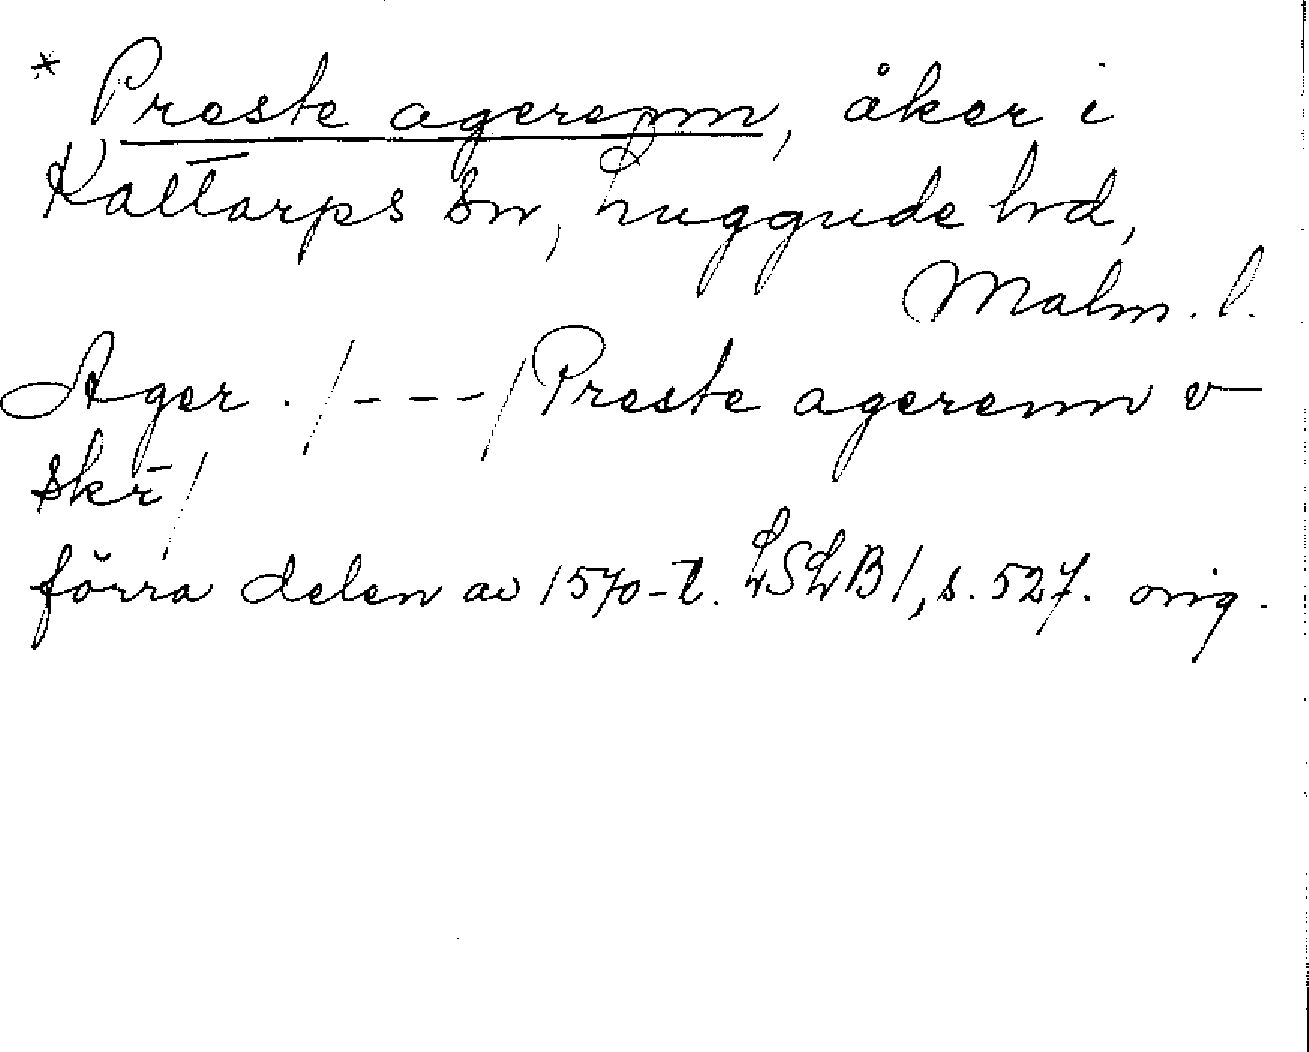 * Preste agerenn, åker i
Kattarps sn, Luggude hd,
Malm. l.
Ager. /---/ Preste agerenn v
skr̄/
förra delen av 1570-t. LSLB 1, s. 527. orig.